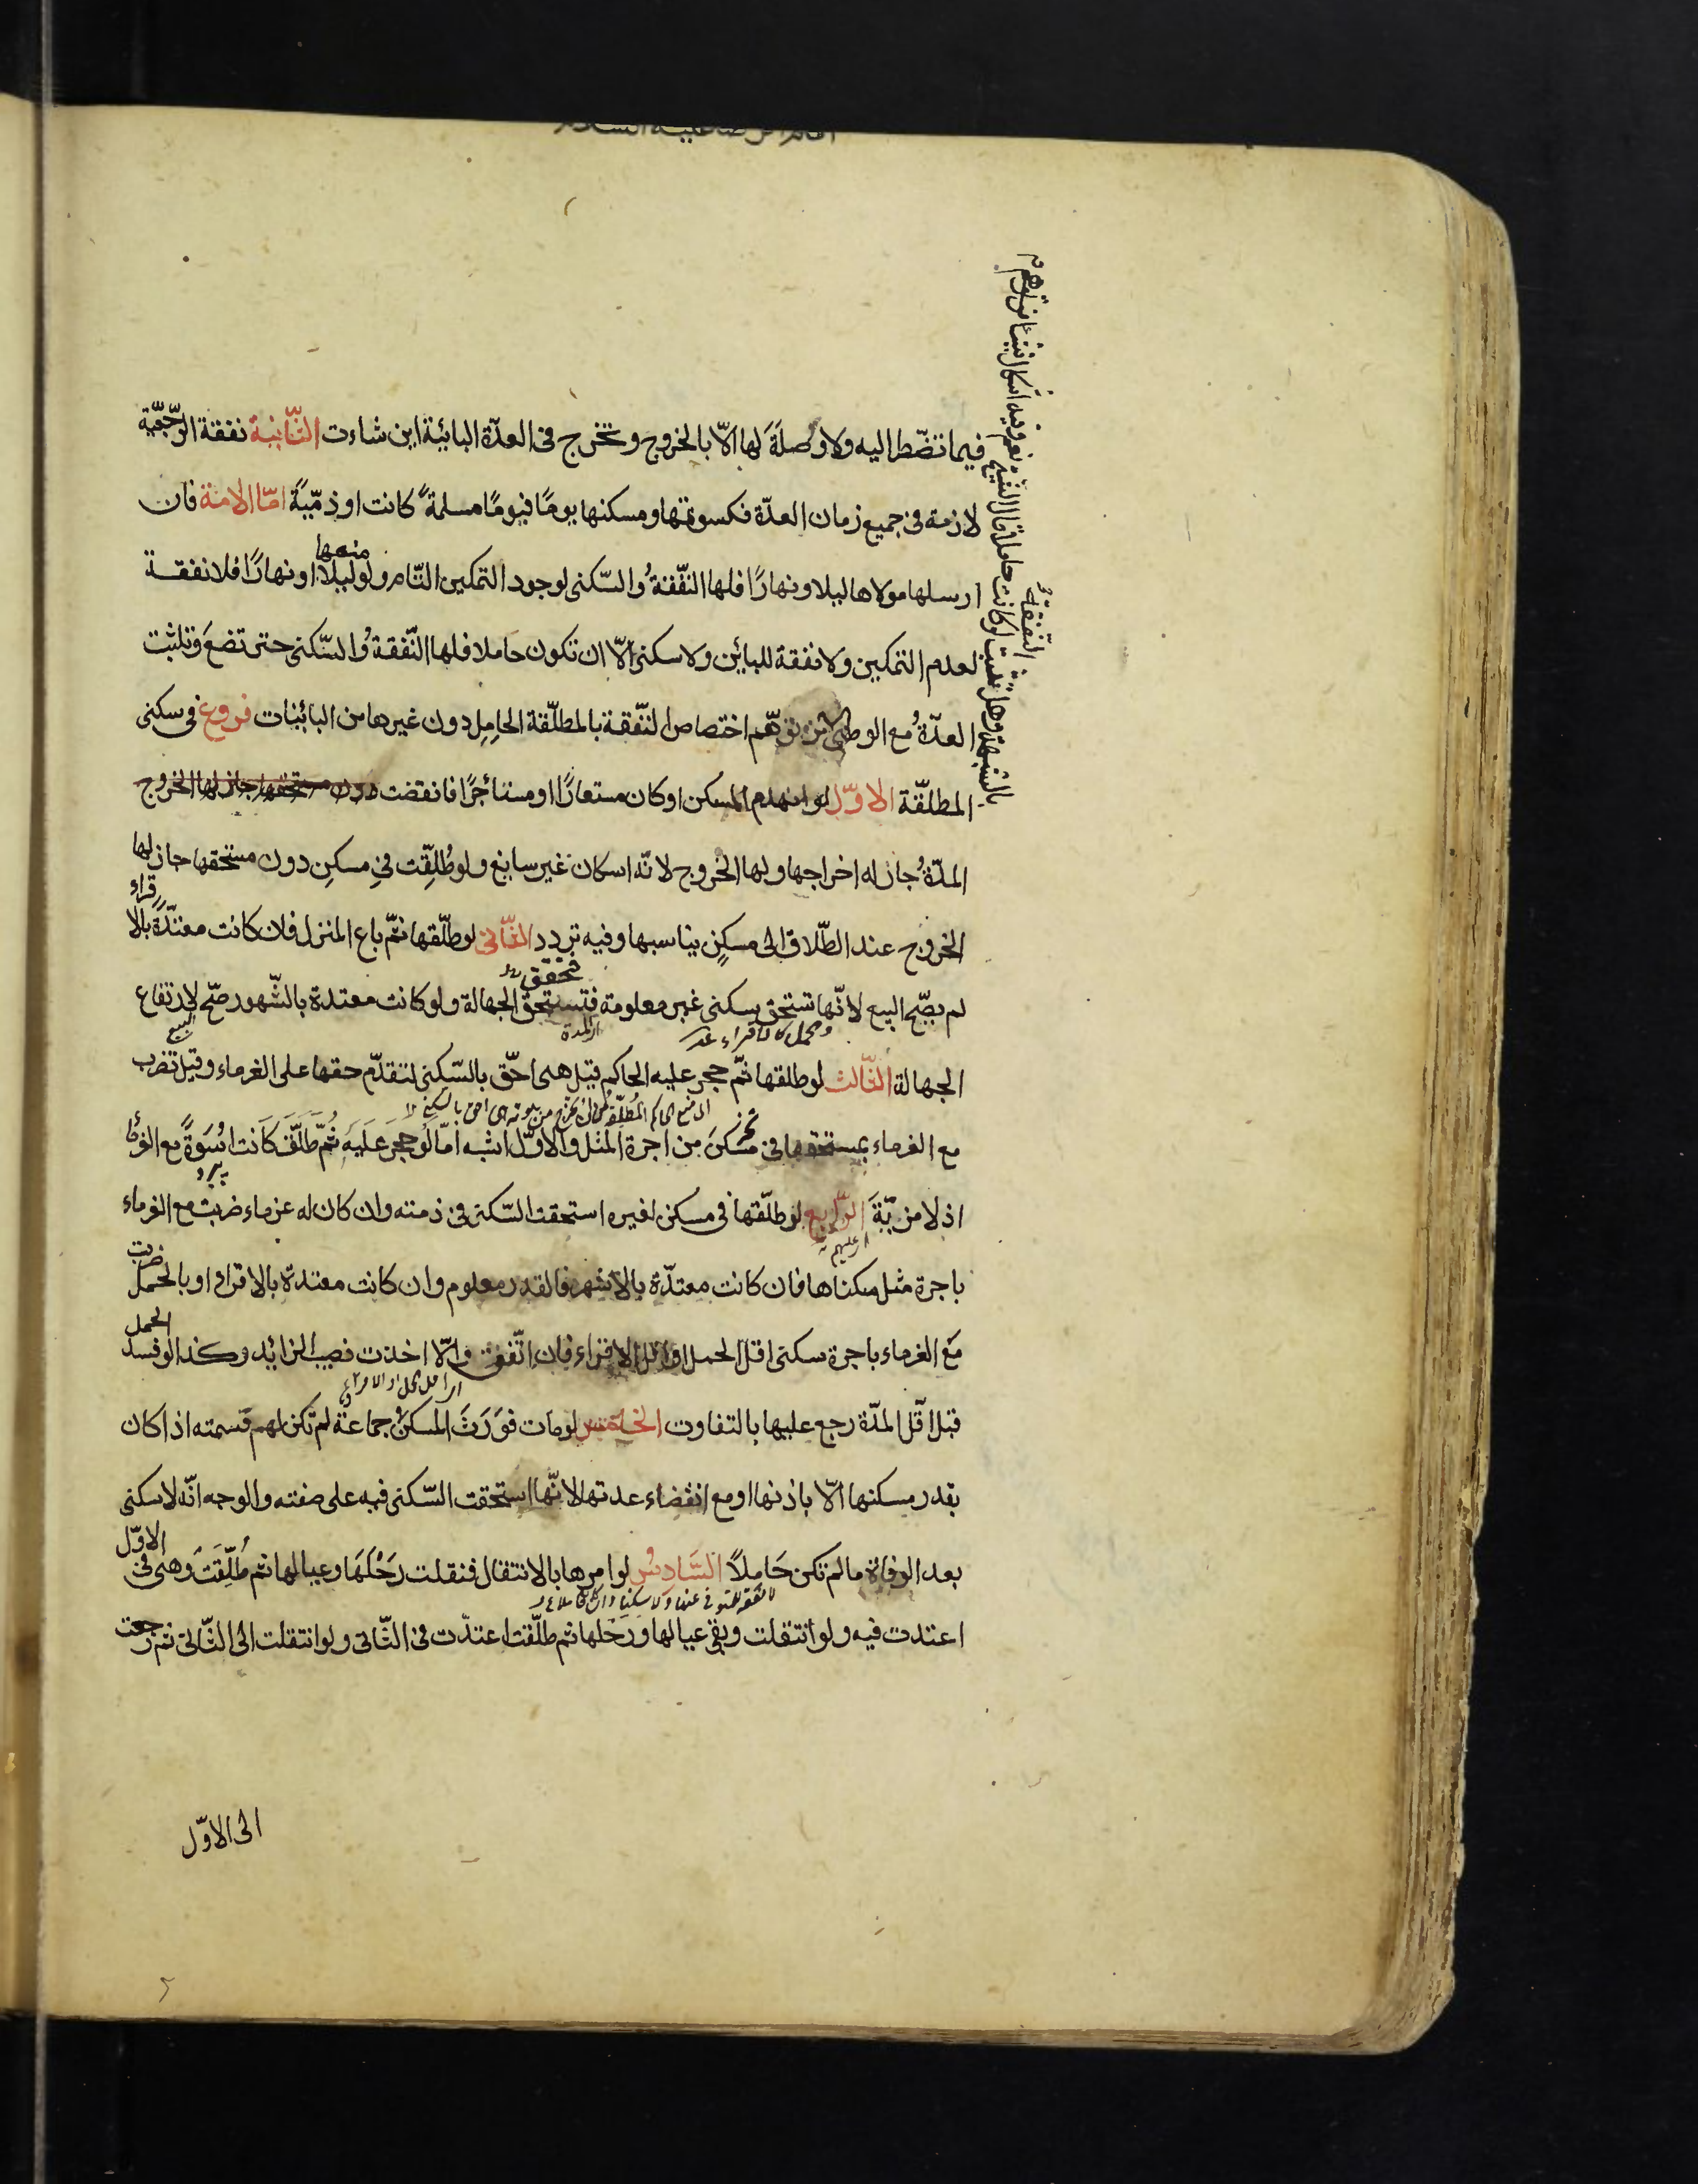 فيما تضطر اليه ولا وصلة لها الّا بالخروج وتخرج فى العدّة البائنة اين شاءت الثّانية نفقة الرّجعيّة
لازمة فى جميع زمان العدّة فكسوتها ومسكنها يومًا فيومًا مسلمةً كانت او ذمّيّةً امّا الامة فان
ارسلها مولاها ليلا ونهارًا فلها النّفقةُ والسّكنى لوجود التمكين التّام ولو منعها ليلا او نهارًا فلا نفقة
لعدم التمكين ولا نفقة للبائن ولا سكنى الّا ان تكون حاملا فلها النّفقةُ والسّكنى حتى تضعَ وتثبت
العدّةُ مع الوطى توهّم اختصاص النّفقة بالمطلّقة الحامِل دون غيرها من البائنات فروع فى سكنى
المطلّقة الاوّل لو انهدم المسكن او كان مستعارًا او مستأجرًا فانقضت دون مستحقها جاز لها الخروج
المدّةُ جاز له اخراجها ولها الخروج لانّه اسكان غير سايغ ولو طُلِّقت فى مسكنٍ دون مستحقها جاز لها
الخروج عند الطّلاق الى مسكنٍ يناسبها وفيه تردد الثّانى لو طلّقها ثمّ باع المنزل فان كانت معتدّةً بالاقراء
لم يصّح البيع لانّها تستحق سكنى غير معلومة فتتحقق الجهالة ولو كانت معتدة بالشّهور صحّ لارتفاع
الجهالة الثّالث لو طلقها ثمّ حجر عليه الحاكم قيل هى احقّ بالسّكنى لتقدّم حقها على الغرماء وقيل تضرب
مع الغرماء بمستحقها من اجرة المثل والاوّل اشبه امّا لو حجرَ عليه ثُمّ طلّق كانت اسوةً مع الغرماء
اذ لا مزيّةَ الرّابع لو طلّقها فى مسكن لغيره استحقت السّكنى فى ذمته وان كان له غرماء ضربت مع الغرماء
باجرة مثل سكناها فان كانت معتدّة بالاشهر فالقدر معلوم وان كانت معتدة بالاقراء او بالحمل ضربت
مع الغرماء باجرة سكنى اقل الحمل او اقل الاقراء فان اتّفق والّا اخذت نصيب الزائد وكذا لو فسد الحمل
قبل اقل المدّة رجع عليها بالتفاوت الخامس لو مات فوَرَثَ المسكنَ جماعة لم تكن لهم قسمته اذا كان
بقدر مسكنها الّا باذنها او مع انقضاء عدتها لانّها استحقت السّكنى فيه على صفته والوجه انّه لا سكنى
بعد الوفاة ما لم تكن حَاملاً السّادس لو امرها بالانتقال فنقلت رَحْلَهَا وعيالها ثم طُلِّقَتْ وهى فى الاوّل
اعتدت فيه ولو انتقلت وبقى عيالها ورَحْلها ثم طلّقت اعتدّت فى الثّانى ولو انتقلت الى الثّانى ثم رجعت
الى الاوّل